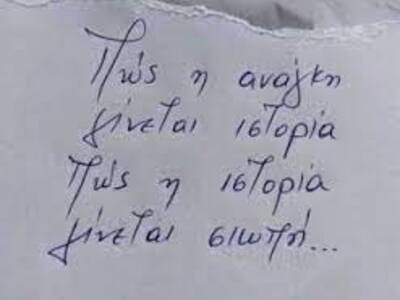 Πώς η ανάγκη
γίνεται ιστορία
Πώς η ιστορία
γίνεται σιωπή...